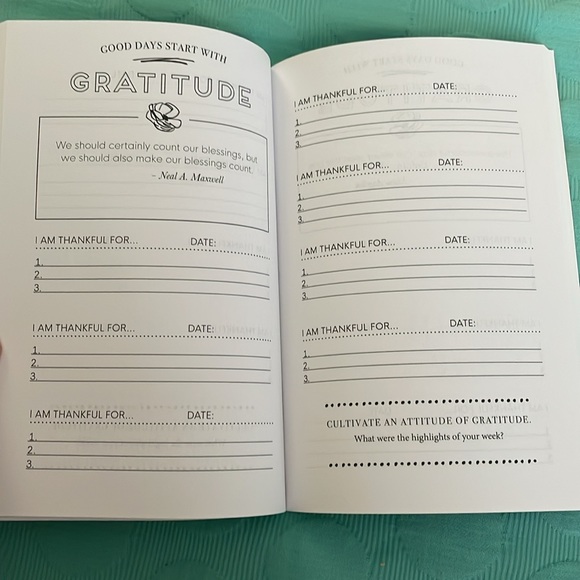 GOOD DAYS START WITH
GRATITUDE
We should certainly count our blessings, but
we should also make our blessings count.
- Neal A. Maxwell
I AM THANKFUL FOR... DATE:
1.
2.
3.
I AM THANKFUL FOR... DATE:
1.
2.
3.
I AM THANKFUL FOR... DATE:
1.
2.
3.
I AM THANKFUL FOR... DATE:
1.
2.
3.
I AM THANKFUL FOR... DATE:
1.
2.
3.
I AM THANKFUL FOR... DATE:
1.
2.
3.
I AM THANKFUL FOR... DATE:
1.
2.
3.
CULTIVATE AN ATTITUDE OF GRATITUDE.
What were the highlights of your week?